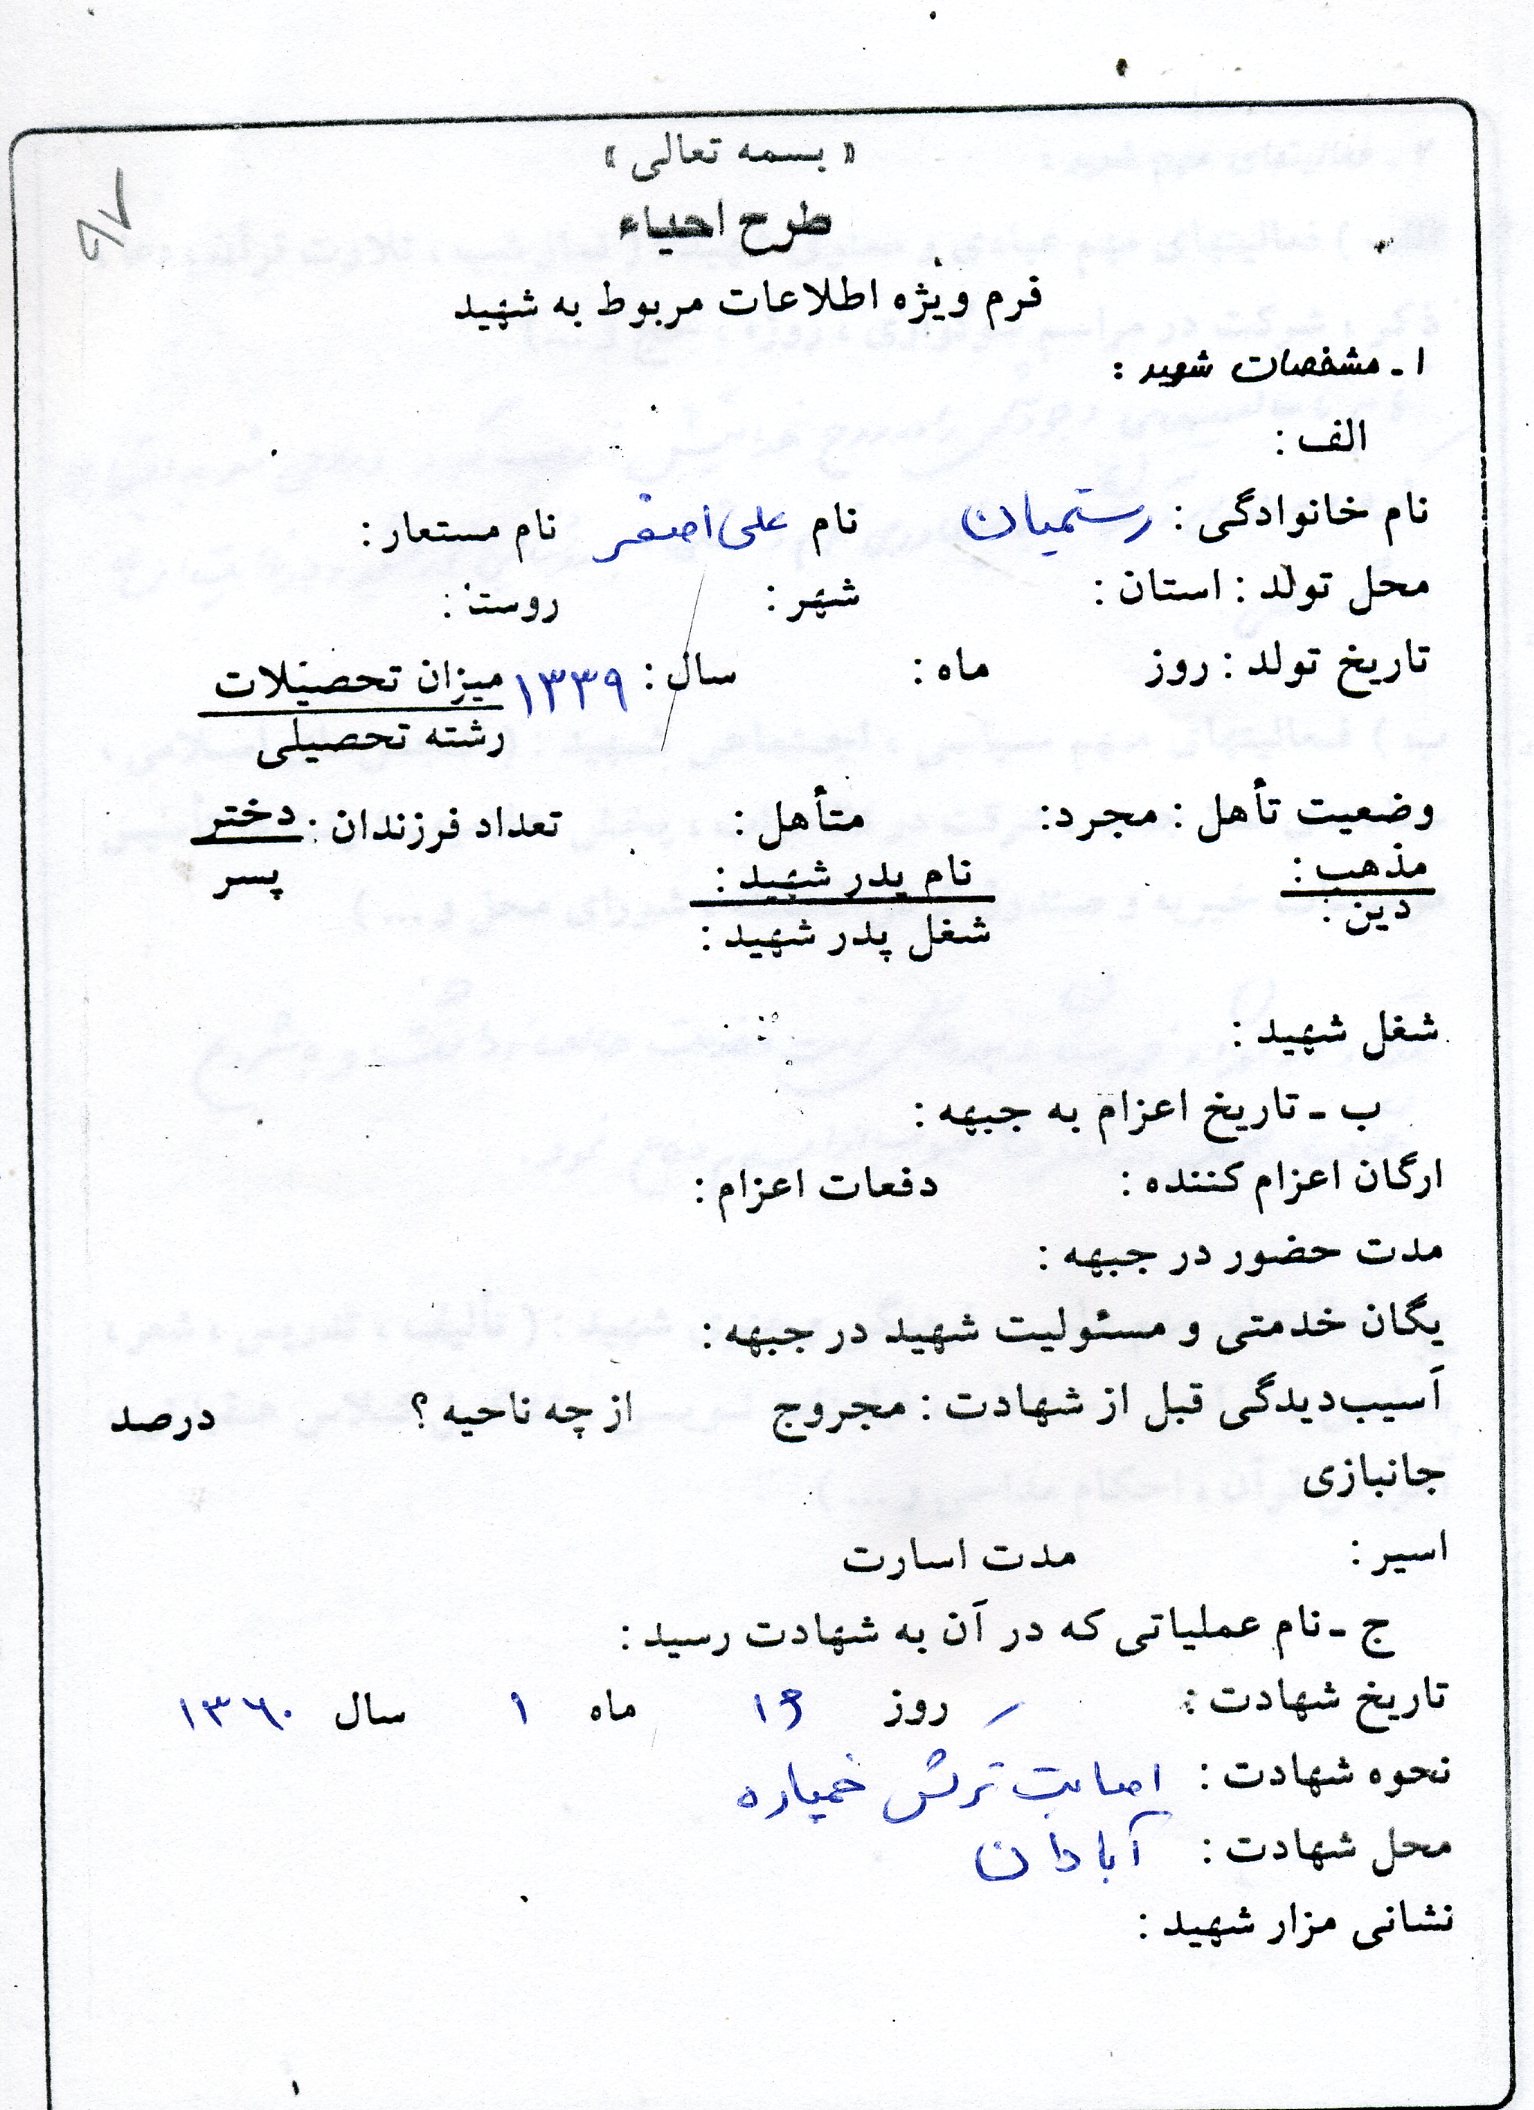 « بسمه تعالی »
طرح احیاء
فرم ویژه اطلاعات مربوط به شهید
۱ ـ مشخصات شهید :
الف :
نام خانوادگی : رستمیان نام علی اصغر نام مستعار :
محل تولد : استان : شهر : روستا :
تاریخ تولد : روز ماه : سال : ۱۳۳۹ میزان تحصیلات
رشته تحصیلی
وضعیت تأهل : مجرد: متأهل : تعداد فرزندان : دختر
پسر
مذهب : نام پدر شهید :
دین : شغل پدر شهید :
شغل شهید :
ب ـ تاریخ اعزام به جبهه :
ارگان اعزام کننده : دفعات اعزام :
مدت حضور در جبهه :
یگان خدمتی و مسئولیت شهید در جبهه :
آسیب‌دیدگی قبل از شهادت : مجروح از چه ناحیه ؟ درصد
جانبازی
اسیر : مدت اسارت
ج ـ نام عملیاتی که در آن به شهادت رسید :
تاریخ شهادت : روز ۱۶ ماه ۱ سال ۱۳۶۰
نحوه شهادت : اصابت ترکش خمپاره
محل شهادت : آبادان
نشانی مزار شهید :
۱